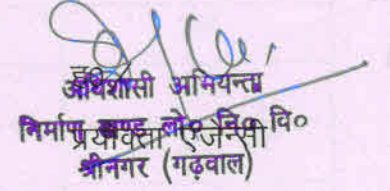 ह०
अधिशासी अभियन्ता
निर्माण खण्ड लो० नि० वि०
प्रयोक्ता एजेन्सी
श्रीनगर (गढ़वाल)